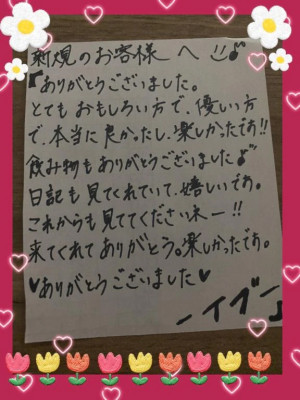 新規のお客様へ
『ありがとうございました。
とてもおもしろい方で、優しい方
で、本当に良かったし、楽しかたです!!
飲み物もありがとうございました♪
日記も見てくれていて、嬉しいです。
これからも見ててくださいネー!!
来てくれてありがとう。楽しかたです。
♥ありがとうございました♥
ーイブー♪